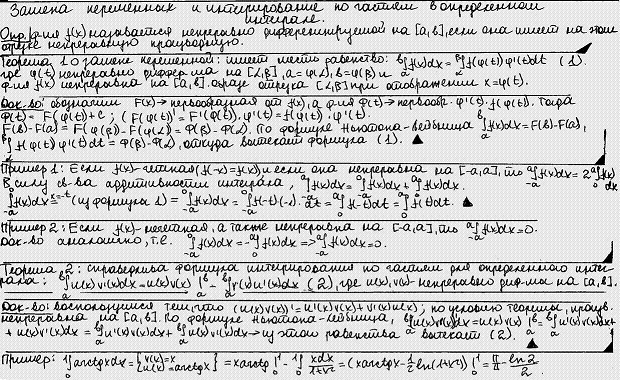 Замена переменных и интегрирование по частям в определенном
интеграле.
Опр. ф-ия f(x) называется непрерывно дифференцируемой на [a,b], если она имеет на этом
отрезке непрерывную производную.
Теорема 1 о замене переменной: имеет место равенство: ᵇ∫ₐ f(x)dx = ᵝ∫ f(φ(t))φ'(t)dt (1).
где φ(t) непрерывно диффер-ма на [α,β], a=φ(α), b=φ(β) и
ф-ия f(x) непрерывна на [a,b], образе отрезка [α,β] при отображении x=φ(t).
Док-во: обозначим F(x)→первообразная от f(x), а ф-ия Ф(t)→первообр. φ'(t)·f(φ(t)). Тогда
Ф(t)= F(φ(t))+C ; (F(φ(t)))'= F'(φ(t))·φ'(t)= f(φ(t))·φ'(t).
F(b)-F(a)= F(φ(β))-F(φ(α))= Ф(β)-Ф(α). По формуле Ньютона-Лейбница ᵇ∫ₐ f(x)dx=F(b)-F(a),
ᵝ∫ f(φ(t))φ'(t)dt=Ф(β)-Ф(α), откуда вытекает формула (1). ▲
Пример 1: Если f(x)-четная (f(-x)=f(x)) и если она непрерывна на [-a,a], то ᵃ∫₋ₐ f(x)dx = 2 ᵃ∫₀ f(x)dx
В силу св-ва аддитивности интеграла, ᵃ∫₋ₐ f(x)dx = ⁰∫₋ₐ f(x)dx + ᵃ∫₀ f(x)dx.
⁰∫₋ₐ f(x)dx x=-t (из формула 1) = ⁰∫ f(-t)(-1)·dt = ᵃ∫₀ f(-t)dt = ᵃ∫₀ f(t)dt. ▲
Пример 2: Если f(x)-нечетная, а также непрерывна на [-a,a], то ᵃ∫₋ₐ f(x)dx=0.
Док-во аналогично, т.е. ⁰∫₋ₐ f(x)dx = -ᵃ∫₀ f(x)dx => ᵃ∫₋ₐ f(x)dx=0.
Теорема 2: справедлива формула интегрирования по частям для определенного интег-
рала: ᵇ∫ₐ u(x)v'(x)dx = u(x)v(x) |ᵇₐ - ᵇ∫ₐ v(x)u'(x)dx (2), где u(x),v(x)-непрерывно диф-мы на [a,b].
Док-во: воспользуемся тем, что (u(x)v(x))'= u'(x)v(x)+v'(x)u(x); по условию теоремы, произв.
непрерывна на [a,b]. По формуле Ньютона-Лейбница, ᵇ∫ₐ (u(x)v(x))'dx=u(x)v(x) |ᵇₐ = ᵇ∫ₐ u'(x)v(x)dx+
+ u(x)v'(x)dx = ᵇ∫ₐ u'(x)v(x)dx + ᵇ∫ₐ u(x)v'(x)dx → из этого равенства вытекает (2). ▲
Пример: ¹∫₀ arctgxdx = [v(x)=x u(x)=arctgx] = xarctgx |¹₀ - ¹∫₀ xdx/(1+x²) = (xarctgx - 1/2 ln(1+x²)) |¹₀ = π/4 - ln2/2.